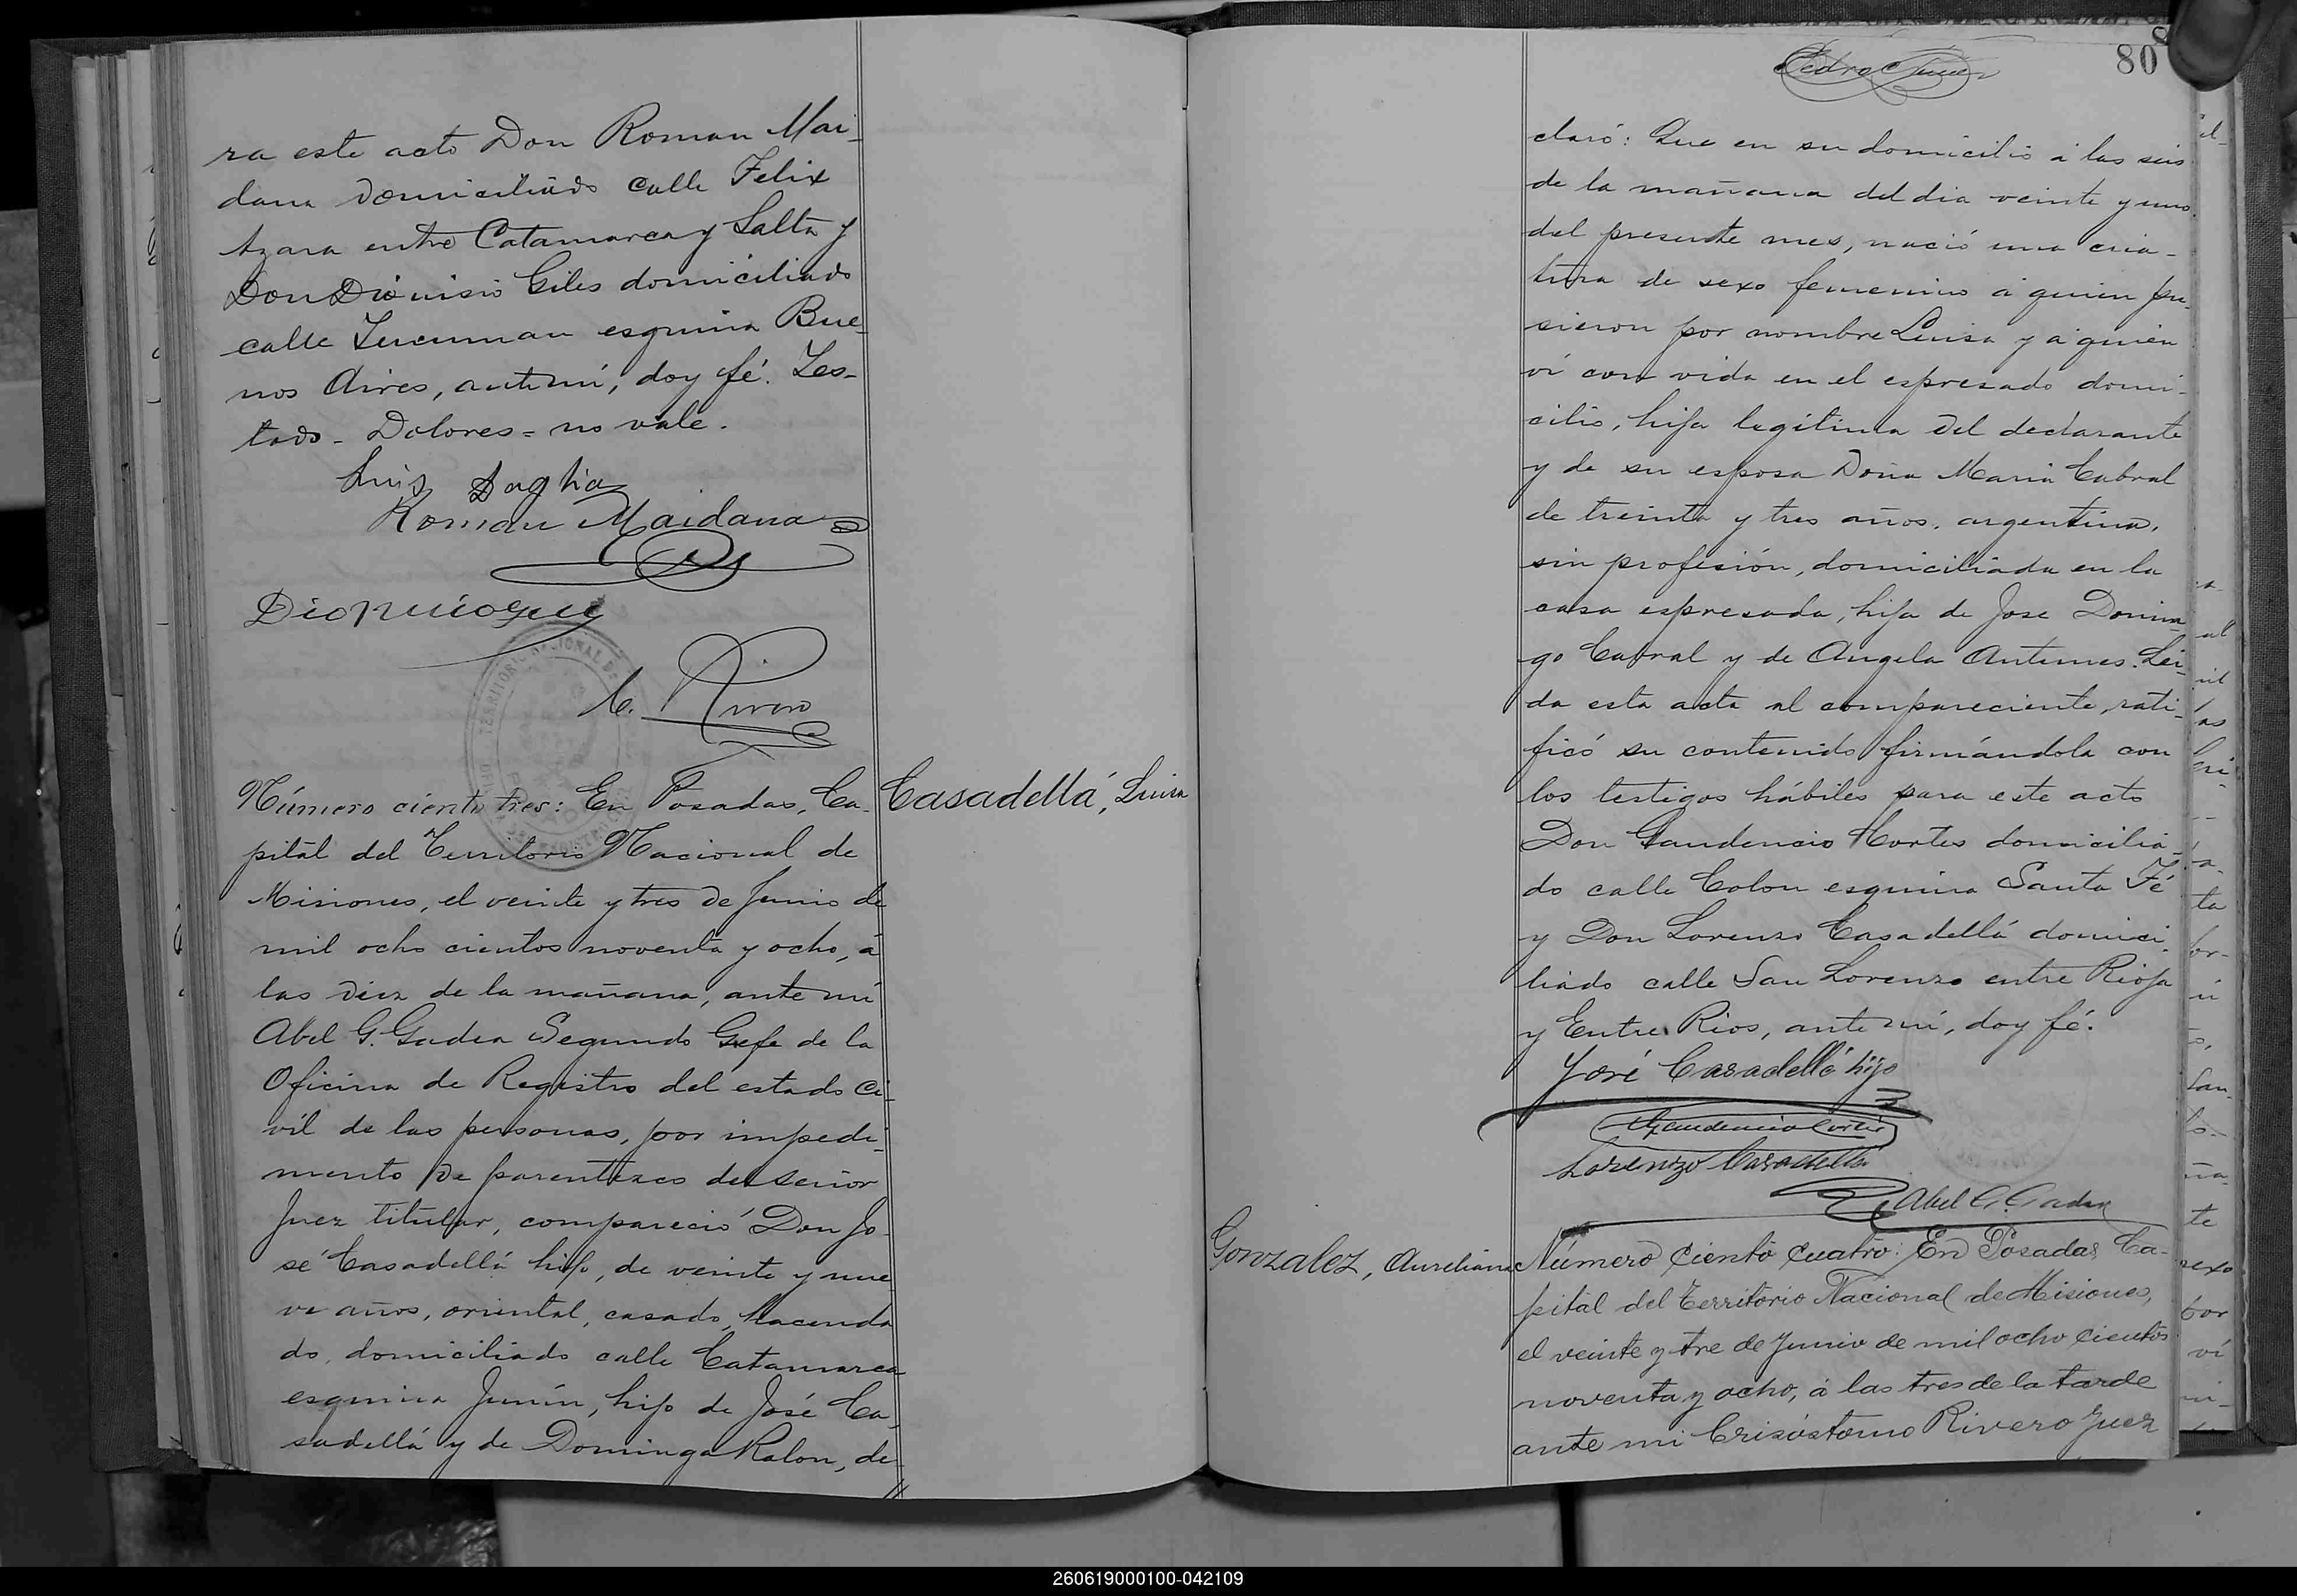 ra este acto Don Roman Mai-
dana domiciliado calle Felix
Azara entre Catamarca y Salta y
Don Dionisio Giles domiciliado
calle Tucuman esquina Bue-
nos Aires, ante mí, doy fé. Tes-
tado - Dolores = no vale.
Luis
Roman Maidana
C. Rivero
Número ciento tres: En Posadas, Ca-
Casadellá, Luisa
pital del Territorio Nacional de
Misiones, el veinte y tres de Junio de
mil ocho cientos noventa y ocho, á
las diez de la mañana, ante mí
Abel G. Gadea Segundo Gefe de la
Oficina de Registro del estado Ci-
vil de las personas, por impedi-
mento de parentezco del señor
Juez titular, compareció Don Jo-
sé Casadellá hijo, de veinte y nue
ve años, oriental, casado, hacenda
do, domiciliado calle Catamarca
esquina Junín, hijo de José Ca-
sadellá y de Dominga Ralon, de-
80
claró: Que en su domicilio á las seis
de la mañana del dia veinte y uno
del presente mes, nació una cria-
tura de sexo femenino á quien pu-
sieron por nombre Luisa y á quien
ví con vida en el espresado domi-
cilio, hija legítima del declarante
y de su esposa Doña Maria Cabral
de treinta y tres años, argentina,
sin profesión, domiciliada en la
casa espresada, hija de Jose Domin-
go Cabral y de Angela Antunes. Lei-
da esta acta al compareciente, rati-
ficó su contenido firmándola con
los testigos hábiles para este acto
Don Gaudencio Cortes domicilia-
do calle Colon esquina Santa Fé
y Don Lorenzo Casadellá domici-
liado calle San Lorenzo entre Rioja
y Entre Rios, ante mí, doy fé.
José Casadellá hijo
Gaudencio Cortes
Lorenzo Casadellá
Abel G. Gadea
Gonzalez, Aureliana
Número ciento cuatro: En Posadas Ca-
pital del Territorio Nacional de Misiones,
el veinte y tre de Junio de mil ocho cientos
noventa y ocho, á las tres de la tarde
ante mi Crisóstomo Rivero Juez
260619000100-042109